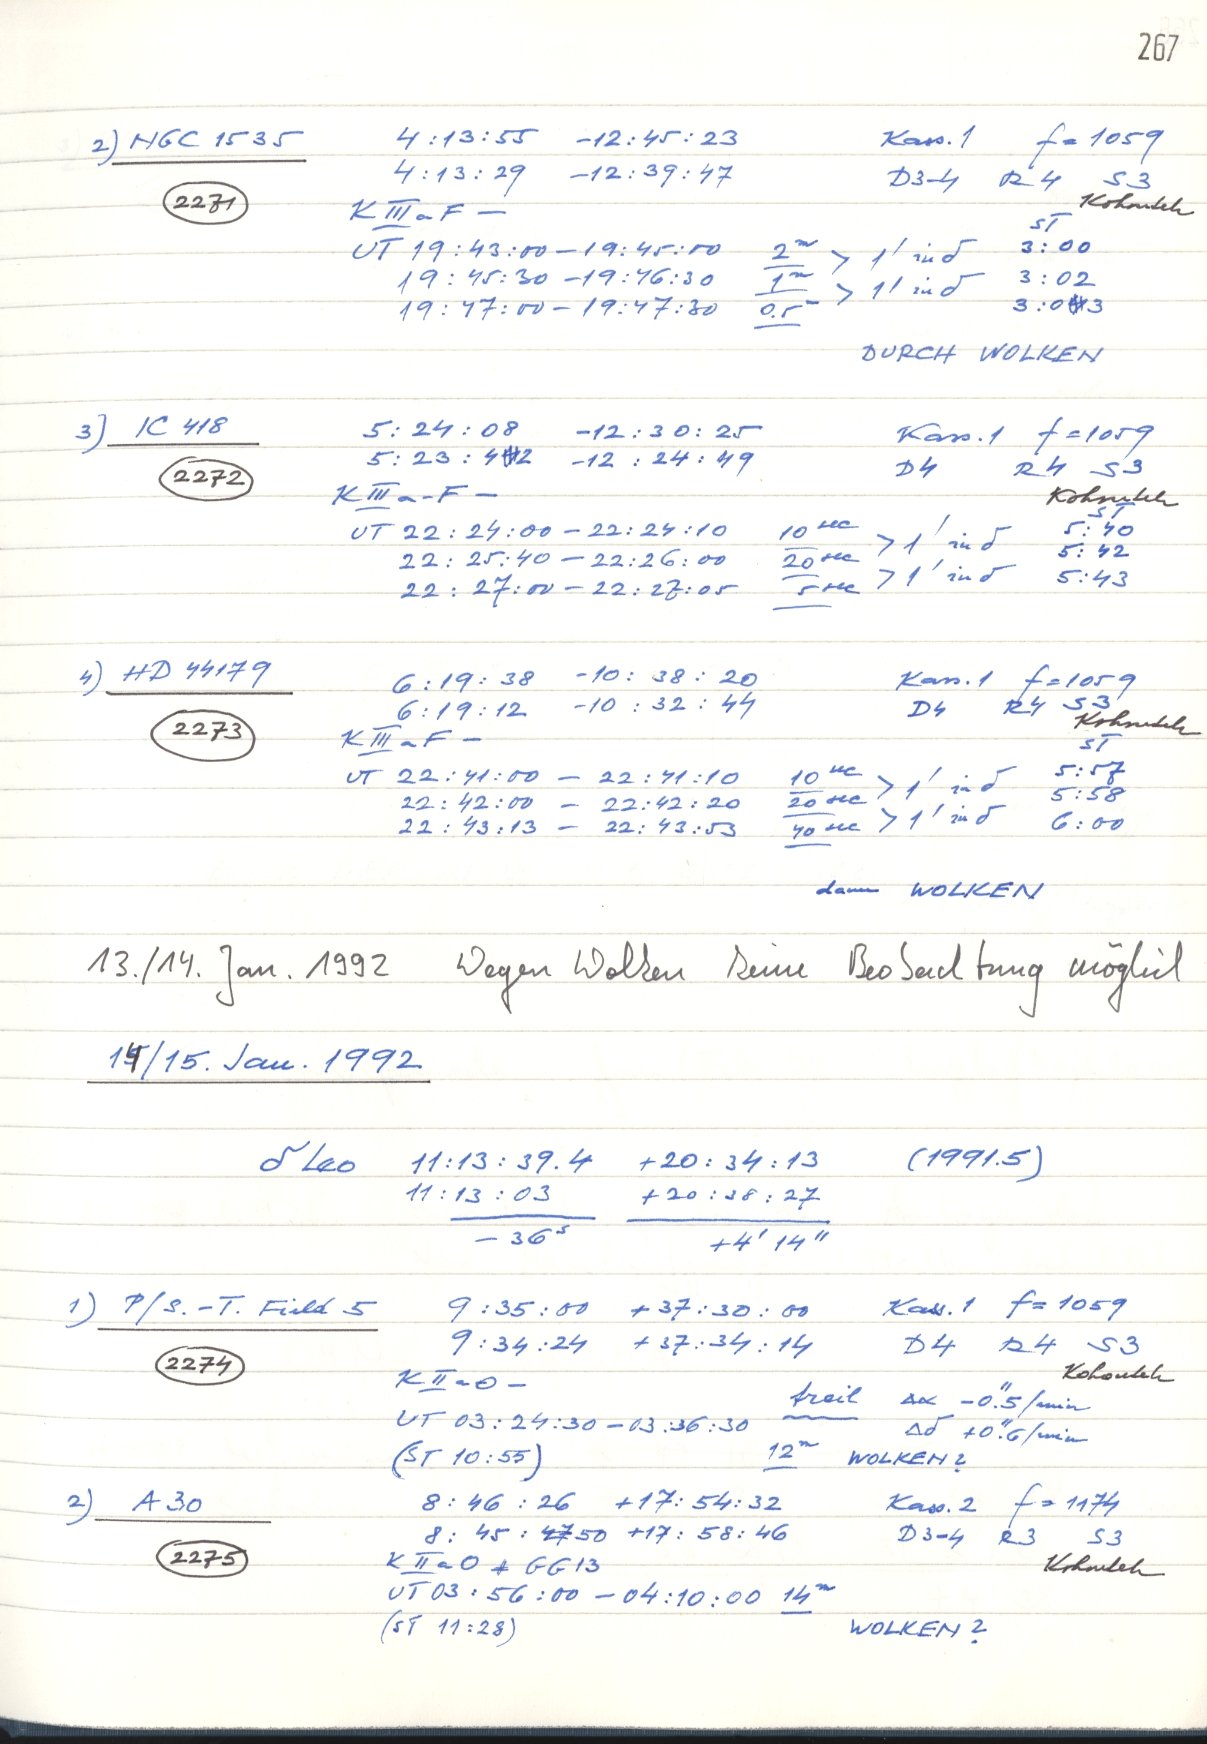 267
2) NGC 1535 4:13:55 -12:45:23 Kass.1 f=1059
4:13:29 -12:39:47 D3-4 R4 S3
2271 Kohoutek
K III a F — ST
UT 19:43:00 – 19:45:00 2m > 1' in δ 3:00
19:45:30 – 19:46:30 1m > 1' in δ 3:02
19:47:00 – 19:47:30 0.5m 3:03
DURCH WOLKEN
3) IC 418 5:24:08 -12:30:25 Kass.1 f=1059
5:23:42 -12:24:49 D4 R4 S3
2272 Kohoutek
K III a-F — ST
UT 22:24:00 – 22:24:10 10 sec > 1' in δ 5:40
22:25:40 – 22:26:00 20 sec > 1' in δ 5:42
22:27:00 – 22:27:05 5 sec 5:43
4) HD 44179 6:19:38 -10:38:20 Kass.1 f=1059
6:19:12 -10:32:44 D4 R4 S3
2273 Kohoutek
K III a F — ST
UT 22:41:00 – 22:41:10 10 sec > 1' in δ 5:57
22:42:00 – 22:42:20 20 sec > 1' in δ 5:58
22:43:13 – 22:43:53 40 sec 6:00
dann WOLKEN
13./14. Jan. 1992 Wegen Wolken keine Beobachtung möglich
14/15. Jan. 1992
δ Leo 11:13:39.4 +20:34:13 (1991.5)
11:13:03 +20:38:27
– 36s +4' 14"
1) P/S.-T. Field 5 9:35:00 +37:30:00 Kass.1 f=1059
9:34:24 +37:34:14 D4 R4 S3
2274 Kohoutek
K II a O —
trail Δα -0."5/min
UT 03:24:30 – 03:36:30 Δδ +0."6/min
(ST 10:55) 12m WOLKEN?
2) A 30 8:46:26 +17:54:32 Kass.2 f=1174
8:45:47 50 +17:58:46 D3-4 R3 S3
2275 K II a O + GG13 Kohoutek
UT 03:56:00 – 04:10:00 14m
(ST 11:28) WOLKEN?